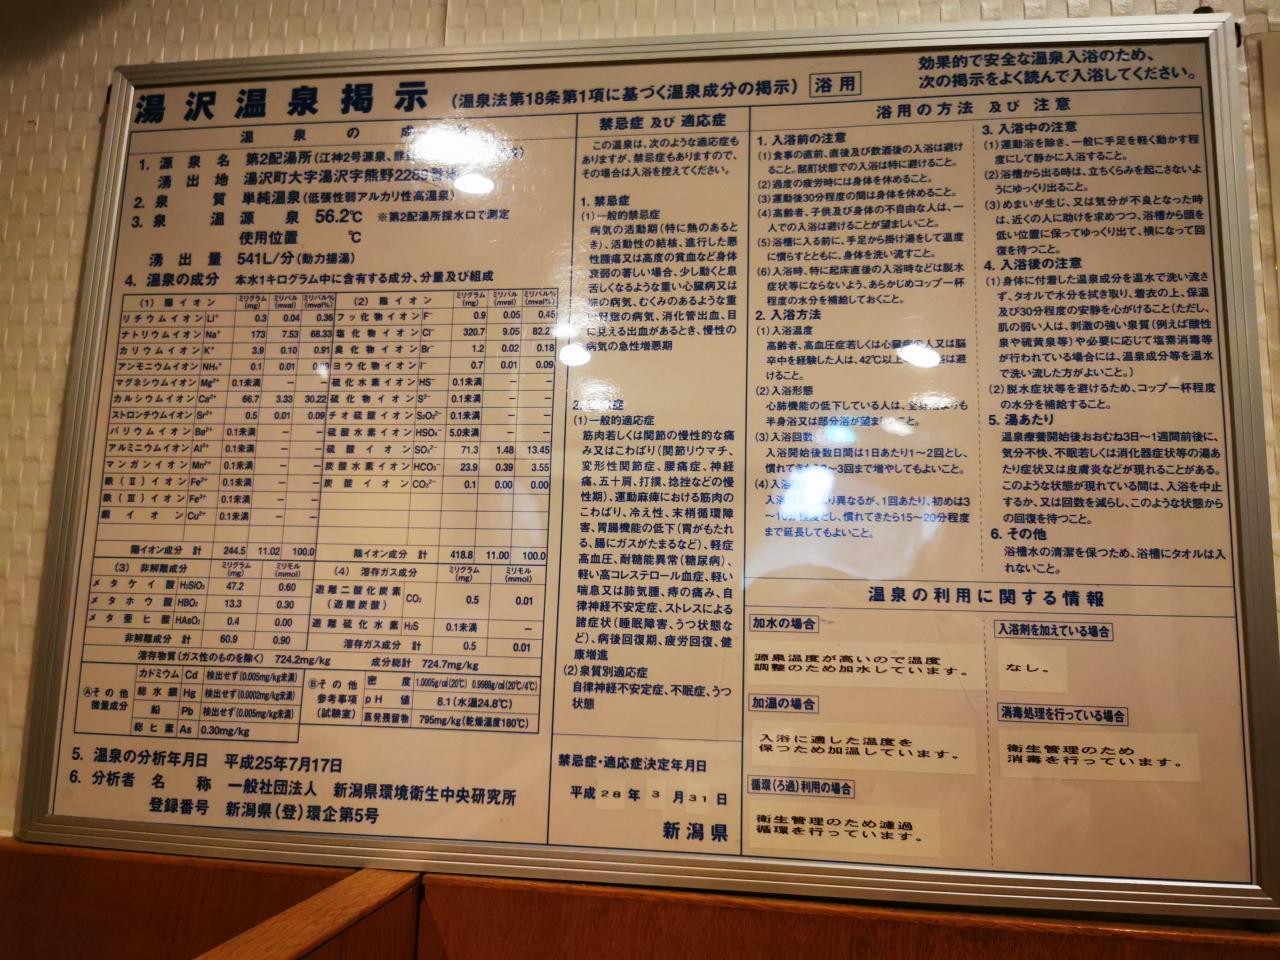 湯沢温泉掲示 (温泉法第18条第1項に基づく温泉成分の掲示) 浴用
効果的で安全な温泉入浴のため、
次の掲示をよく読んで入浴してください。
温泉の成
1. 源泉名 第2配湯所(江神2号源泉、
湧出地 湯沢町大字湯沢字熊野2289
2. 泉質 単純温泉(低張性弱アルカリ性高温泉)
3. 泉温 源泉 56.2℃ ※第2配湯所採水口で測定
使用位置 ℃
湧出量 541L/分(動力揚湯)
4. 温泉の成分 本水1キログラム中に含有する成分、分量及び組成
(1) 陽イオン ミリグラム(mg) ミリバル(mval) ミリバル%(mval%)
リチウムイオン Li⁺ 0.3 0.04 0.36
ナトリウムイオン Na⁺ 173 7.53 68.33
カリウムイオン K⁺ 3.9 0.10 0.91
アンモニウムイオン NH₄⁺ 0.1 0.01
マグネシウムイオン Mg²⁺ 0.1未満 － －
カルシウムイオン Ca²⁺ 66.7 3.33 30.22
ストロンチウムイオン Sr²⁺ 0.5 0.01 0.09
バリウムイオン Ba²⁺ 0.1未満 － －
アルミニウムイオン Al³⁺ 0.1未満 － －
マンガンイオン Mn²⁺ 0.1未満 － －
鉄(Ⅱ)イオン Fe²⁺ 0.1未満 － －
鉄(Ⅲ)イオン Fe³⁺ 0.1未満 － －
銅イオン Cu²⁺ 0.1未満 － －
陽イオン成分 計 244.5 11.02 100.0
(2) 陰イオン ミリグラム(mg) ミリバル(mval) ミリバル%(mval%)
フッ化物イオン F⁻ 0.9 0.05 0.45
塩化物イオン Cl⁻ 320.7 9.05 82.27
臭化物イオン Br⁻ 1.2 0.02 0.18
ヨウ化物イオン I⁻ 0.7 0.01 0.09
硫化水素イオン HS⁻ 0.1未満 － －
硫化物イオン S²⁻ 0.1未満 － －
チオ硫酸イオン S₂O₃²⁻ 0.1未満 － －
硫酸水素イオン HSO₄⁻ 5.0未満 － －
硫酸イオン SO₄²⁻ 71.3 1.48 13.45
炭酸水素イオン HCO₃⁻ 23.9 0.39 3.55
炭酸イオン CO₃²⁻ 0.1 0.00 0.00
陰イオン成分 計 418.8 11.00 100.0
(3) 非解離成分 ミリグラム(mg) ミリモル(mmol)
メタケイ酸 H₂SiO₃ 47.2 0.60
メタホウ酸 HBO₂ 13.3 0.30
メタ亜ヒ酸 HAsO₂ 0.4 0.00
非解離成分 計 60.9 0.90
(4) 溶存ガス成分 ミリグラム(mg) ミリモル(mmol)
遊離二酸化炭素(遊離炭酸) CO₂ 0.5 0.01
遊離硫化水素 H₂S 0.1未満 －
溶存ガス成分 計 0.5 0.01
溶存物質(ガス性のものを除く) 724.2mg/kg 成分総計 724.7mg/kg
Ⓐその他微量成分
カドミウム Cd 検出せず(0.005mg/kg未満)
総水銀 Hg 検出せず(0.0002mg/kg未満)
鉛 Pb 検出せず(0.005mg/kg未満)
総ヒ素 As 0.30mg/kg
Ⓑその他参考事項(試験室)
密度 1.0005g/㎤(20℃) 0.9988g/㎤(20℃/4℃)
pH値 8.1(水温24.8℃)
蒸発残留物 795mg/kg(乾燥温度180℃)
5. 温泉の分析年月日 平成25年7月17日
6. 分析者 名称 一般社団法人 新潟県環境衛生中央研究所
登録番号 新潟県(登)環企第5号
禁忌症及び適応症
この温泉は、次のような適応症も
ありますが、禁忌症もありますので、
その場合は入浴を控えてください。
1. 禁忌症
(1)一般的禁忌症
病気の活動期(特に熱のあると
き)、活動性の結核、進行した悪
性腫瘍又は高度の貧血など身体
衰弱の著しい場合、少し動くと息
苦しくなるような重い心臓病又は
の病気、むくみのあるような重
腎臓の病気、消化管出血、目
に見える出血があるとき、慢性の
病気の急性増悪期
2. 症
(1)一般的適応症
筋肉若しくは関節の慢性的な痛
み又はこわばり(関節リウマチ、
変形性関節症、腰痛症、神経
痛、五十肩、打撲、捻挫などの慢
性期)、運動麻痺における筋肉の
こわばり、冷え性、末梢循環障
害、胃腸機能の低下(胃がもたれ
る、腸にガスがたまるなど)、軽症
高血圧、耐糖能異常(糖尿病)、
軽い高コレステロール血症、軽い
喘息又は肺気腫、痔の痛み、自
律神経不安定症、ストレスによる
諸症状(睡眠障害、うつ状態な
ど)、病後回復期、疲労回復、健
康増進
(2)泉質別適応症
自律神経不安定症、不眠症、うつ
状態
禁忌症・適応症決定年月日
平成28年3月31日
新潟県
浴用の方法及び注意
1. 入浴前の注意
(1)食事の直前、直後及び飲酒後の入浴は避け
ること。酩酊状態での入浴は特に避けること。
(2)過度の疲労時には身体を休めること。
(3)運動後30分程度の間は身体を休めること。
(4)高齢者、子供及び身体の不自由な人は、一
人での入浴は避けることが望ましいこと。
(5)浴槽に入る前に、手足から掛け湯をして温度
に慣らすとともに、身体を洗い流すこと。
(6)入浴時、特に起床直後の入浴時などは脱水
症状等にならないよう、あらかじめコップ一杯
程度の水分を補給しておくこと。
2. 入浴方法
(1)入浴温度
高齢者、高血圧症若しくは心臓の人又は脳
卒中を経験した人は、42℃以上は避
けること。
(2)入浴形態
心肺機能の低下している人は、全身よりも
半身浴又は部分浴が望ましいこと。
(3)入浴回数
入浴開始後数日間は1日あたり1～2回とし、
慣れてき～3回まで増やしてもよいこと。
(4)入浴
入浴り異なるが、1回あたり、初めは3
～10分程度とし、慣れてきたら15～20分程度
まで延長してもよいこと。
3. 入浴中の注意
(1)運動浴を除き、一般に手足を軽く動かす程
度にして静かに入浴すること。
(2)浴槽から出る時は、立ちくらみを起こさないよ
うにゆっくり出ること。
(3)めまいが生じ、又は気分が不良となった時
は、近くの人に助けを求めつつ、浴槽から頭を
低い位置に保ってゆっくり出て、横になって回
復を待つこと。
4. 入浴後の注意
(1)身体に付着した温泉成分を温水で洗い流さ
ず、タオルで水分を拭き取り、着衣の上、保温
及び30分程度の安静を心がけること(ただし、
肌の弱い人は、刺激の強い泉質(例えば酸性
泉や硫黄泉等)や必要に応じて塩素消毒等
が行われている場合には、温泉成分等を温水
で洗い流した方がよいこと。)
(2)脱水症状等を避けるため、コップ一杯程度
の水分を補給すること。
5. 湯あたり
温泉療養開始後おおむね3日～1週間前後に、
気分不快、不眠若しくは消化器症状等の湯あ
たり症状又は皮膚炎などが現れることがある。
このような状態が現れている間は、入浴を中止
するか、又は回数を減らし、このような状態から
の回復を待つこと。
6. その他
浴槽水の清潔を保つため、浴槽にタオルは入
れないこと。
温泉の利用に関する情報
加水の場合
源泉温度が高いので温度
調整のため加水しています。
加温の場合
入浴に適した温度を
保つため加温しています。
循環(ろ過)利用の場合
衛生管理のため濾過
循環を行っています。
入浴剤を加えている場合
なし。
消毒処理を行っている場合
衛生管理のため
消毒を行っています。